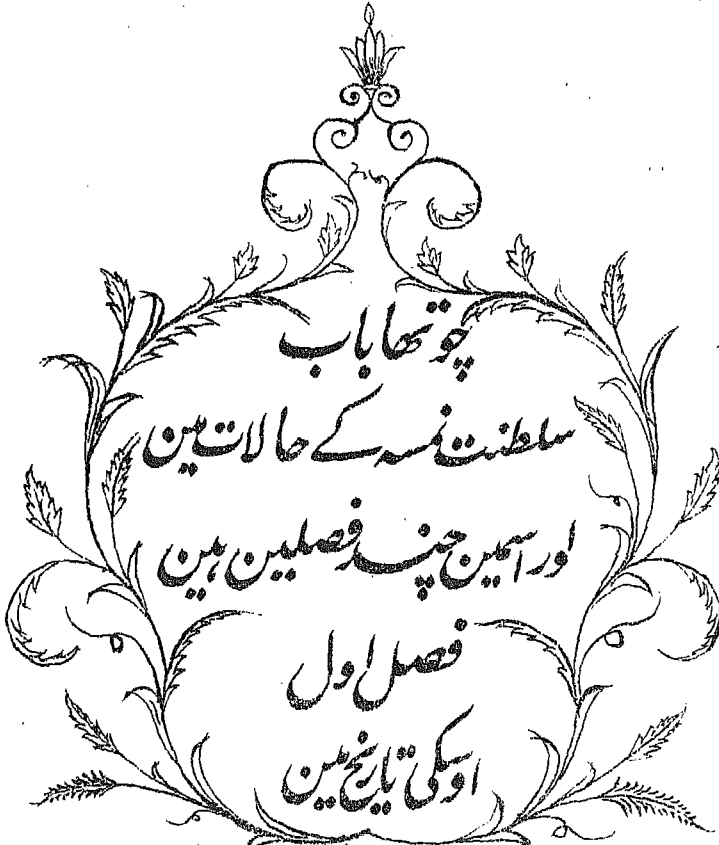 چوتھا باب
سلطنت نمسہ کے حالات مین
اور اسمین چند فصلین ہین
فصل اول
اوسکی تاریخ مین